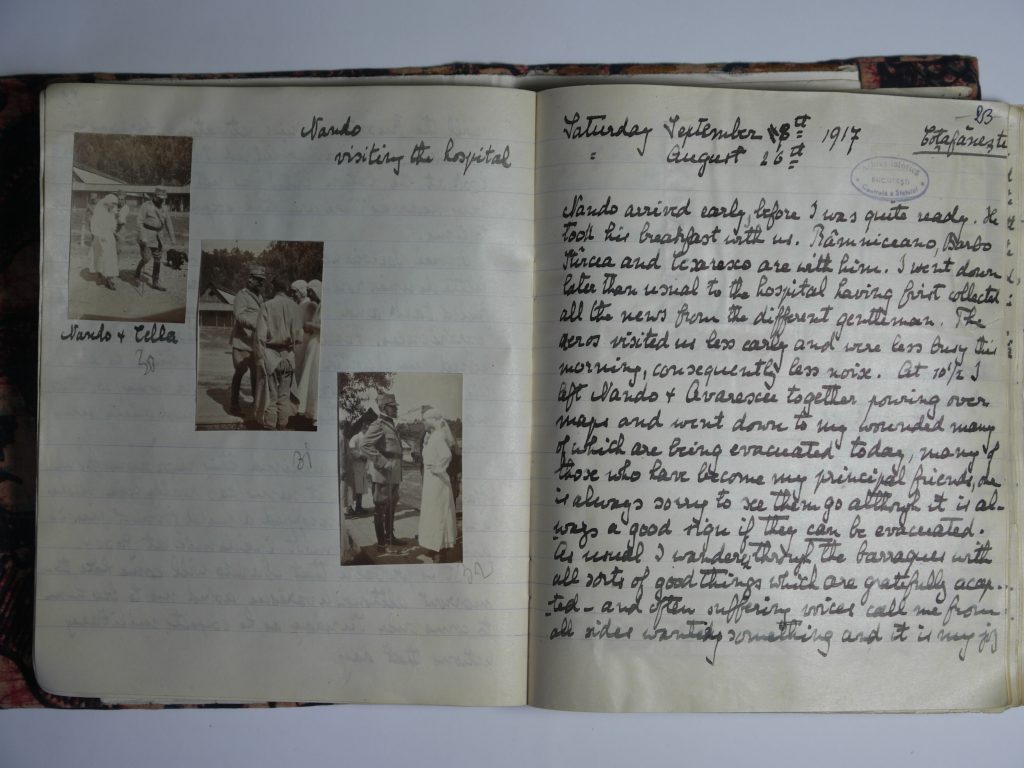 Nando
visiting the hospital
Nando & Cella
30
31
32
23
Saturday September 8th 1917
" August 26th
Coţofăneşti
Bucureşti
Centrală a Statului
Nando arrived early, before I was quite ready. He
took his breakfast with us. Râmniceano, Barbo
Ștircea and are with him. I went down
later than usual to the hospital having first collected
all the news from the different gentleman. The
aeros visited us less early and were less busy this
morning, consequently less noise. At 10 1/2 I
left Nando & Avarescu together powring over
maps and went down to my wounded many
of which are being evacuated today, many of
those who have become my principal friends, one
is always sorry to see them go although it is al-
ways a good sign if they can be evacuated.
As usual I wandered through the barraques with
all sorts of good things which are gratefully accep-
-ted - and often suffering voices call me from
all sides wanting something and it is my joy